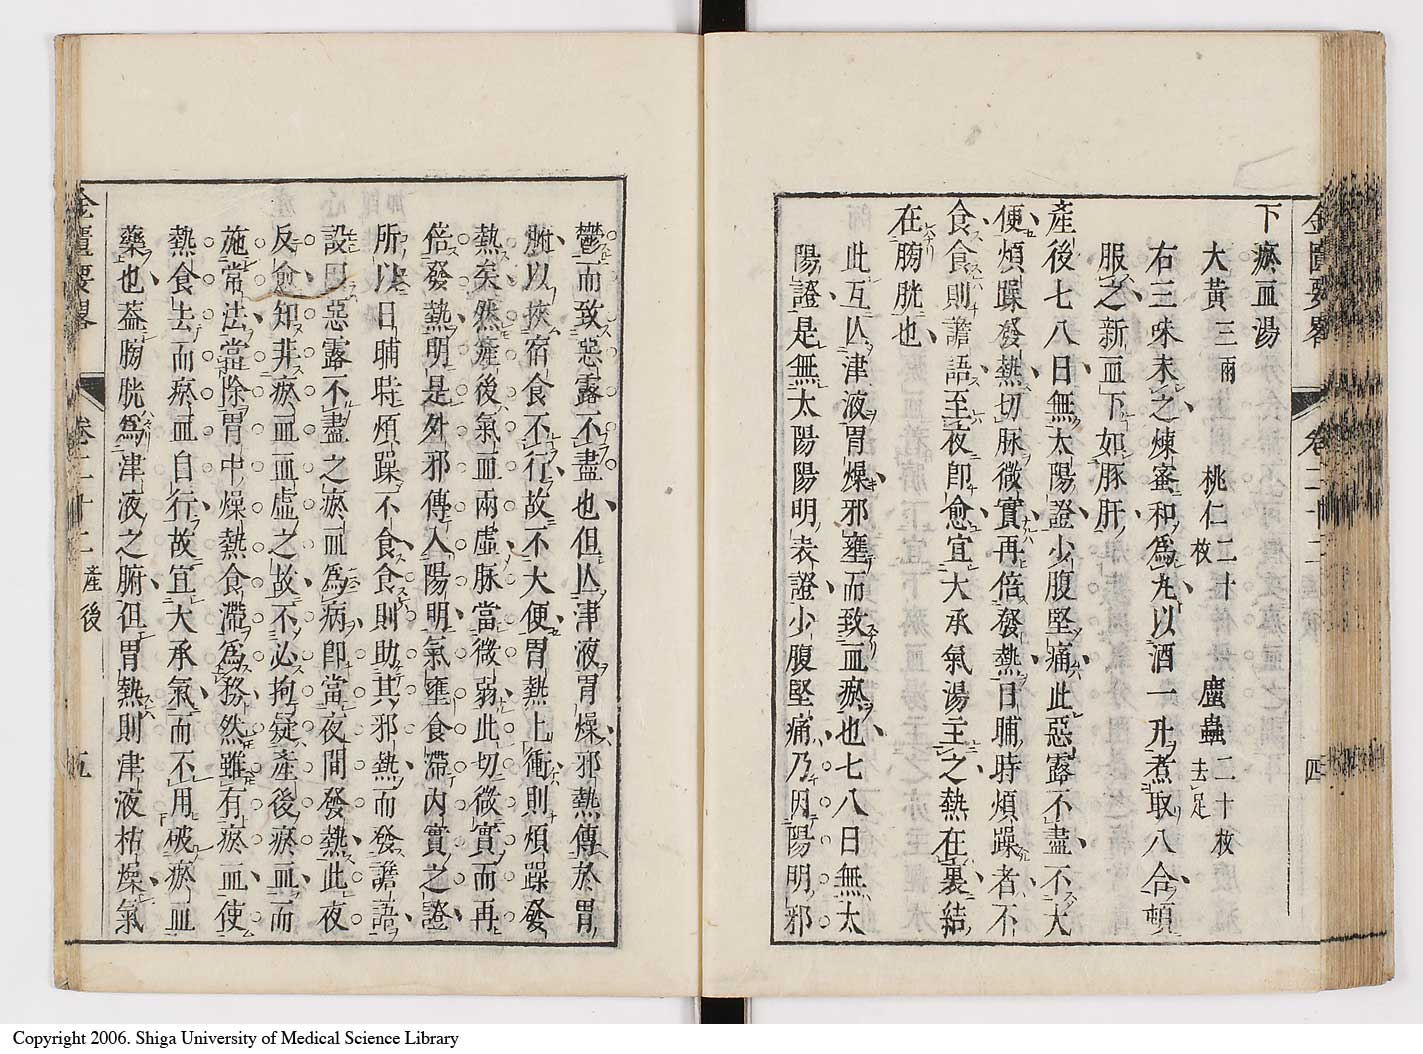 金匱要畧 卷二十二 四
下瘀血湯
大黃三兩 桃仁二十枚 䗪蟲二十枚去足
右三味末之煉蜜和爲丸以酒一升煮取八合頓
服之新血下如豚肝
產後七八日無太陽證少腹堅痛此惡露不盡不大
便煩躁發熱切脉微實再倍發熱日晡時煩躁者不
食食則譫語至夜卽愈宜大承氣湯主之熱在裏結
在膀胱也
此互亾津液胃燥邪壅而致血瘀也七八日無太
陽證是無太陽陽明表證少腹堅痛乃因陽明邪
鬱而致惡露不盡也但亾津液胃燥邪熱傳於胃
腑以挾宿食不行故不大便胃熱上衝則煩躁發
熱矣然產後氣血兩虛脉當微弱此切微實而再
倍發熱明是外邪傳入陽明氣壅食滯內實之證
所以日晡時煩躁不食食則助其邪熱而發譫語
設因惡露不盡之瘀血爲病卽當夜間發熱此夜
反愈知非瘀血血虛之故不必拘疑產後瘀血而
施常法當除胃中燥熱食滯爲務然雖有瘀血使
熱食去而瘀血自行故宜大承氣而不用破瘀血
藥也葢膀胱爲津液之腑但胃熱則津液枯燥氣
金匱要畧 卷二十二 產後 五
Copyright 2006. Shiga University of Medical Science Library